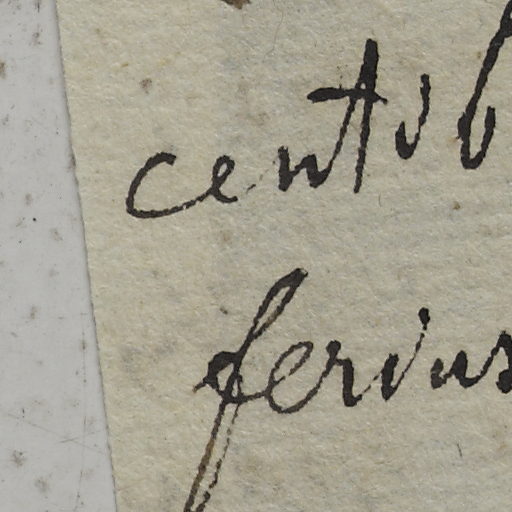 cent ob
ferius